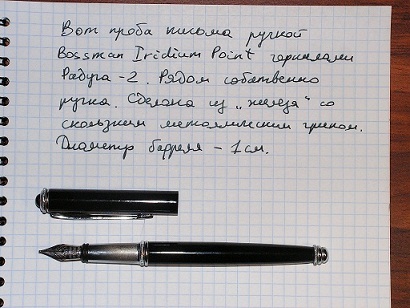 Вот проба письма ручкой
Bossman Iridium Point чернилами
Радуга-2. Рядом собственно
ручка. Сделана из „железа“ со
скользким металлическим грипом.
Диаметр барреля - 1 см.